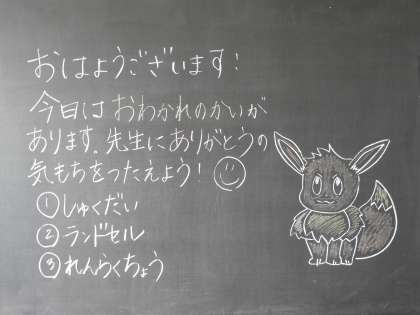 おはようございます!
今日は おわかれのかいが
あります。先生にありがとうの
気もちをつたえよう!
①しゅくだい
②ランドセル
③れんらくちょう